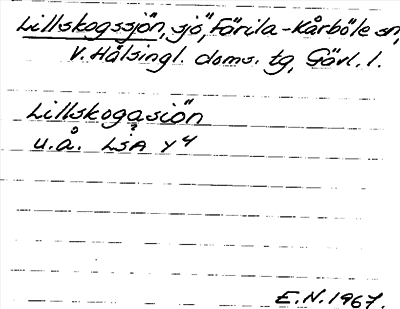 Lillskogssjön, sjö, Färila-Kårböle sn,
V. Hälsingl. doms. tg, Gävl. l.
Lillskogasjön
u.å. LSA Y4
E.N. 1967.